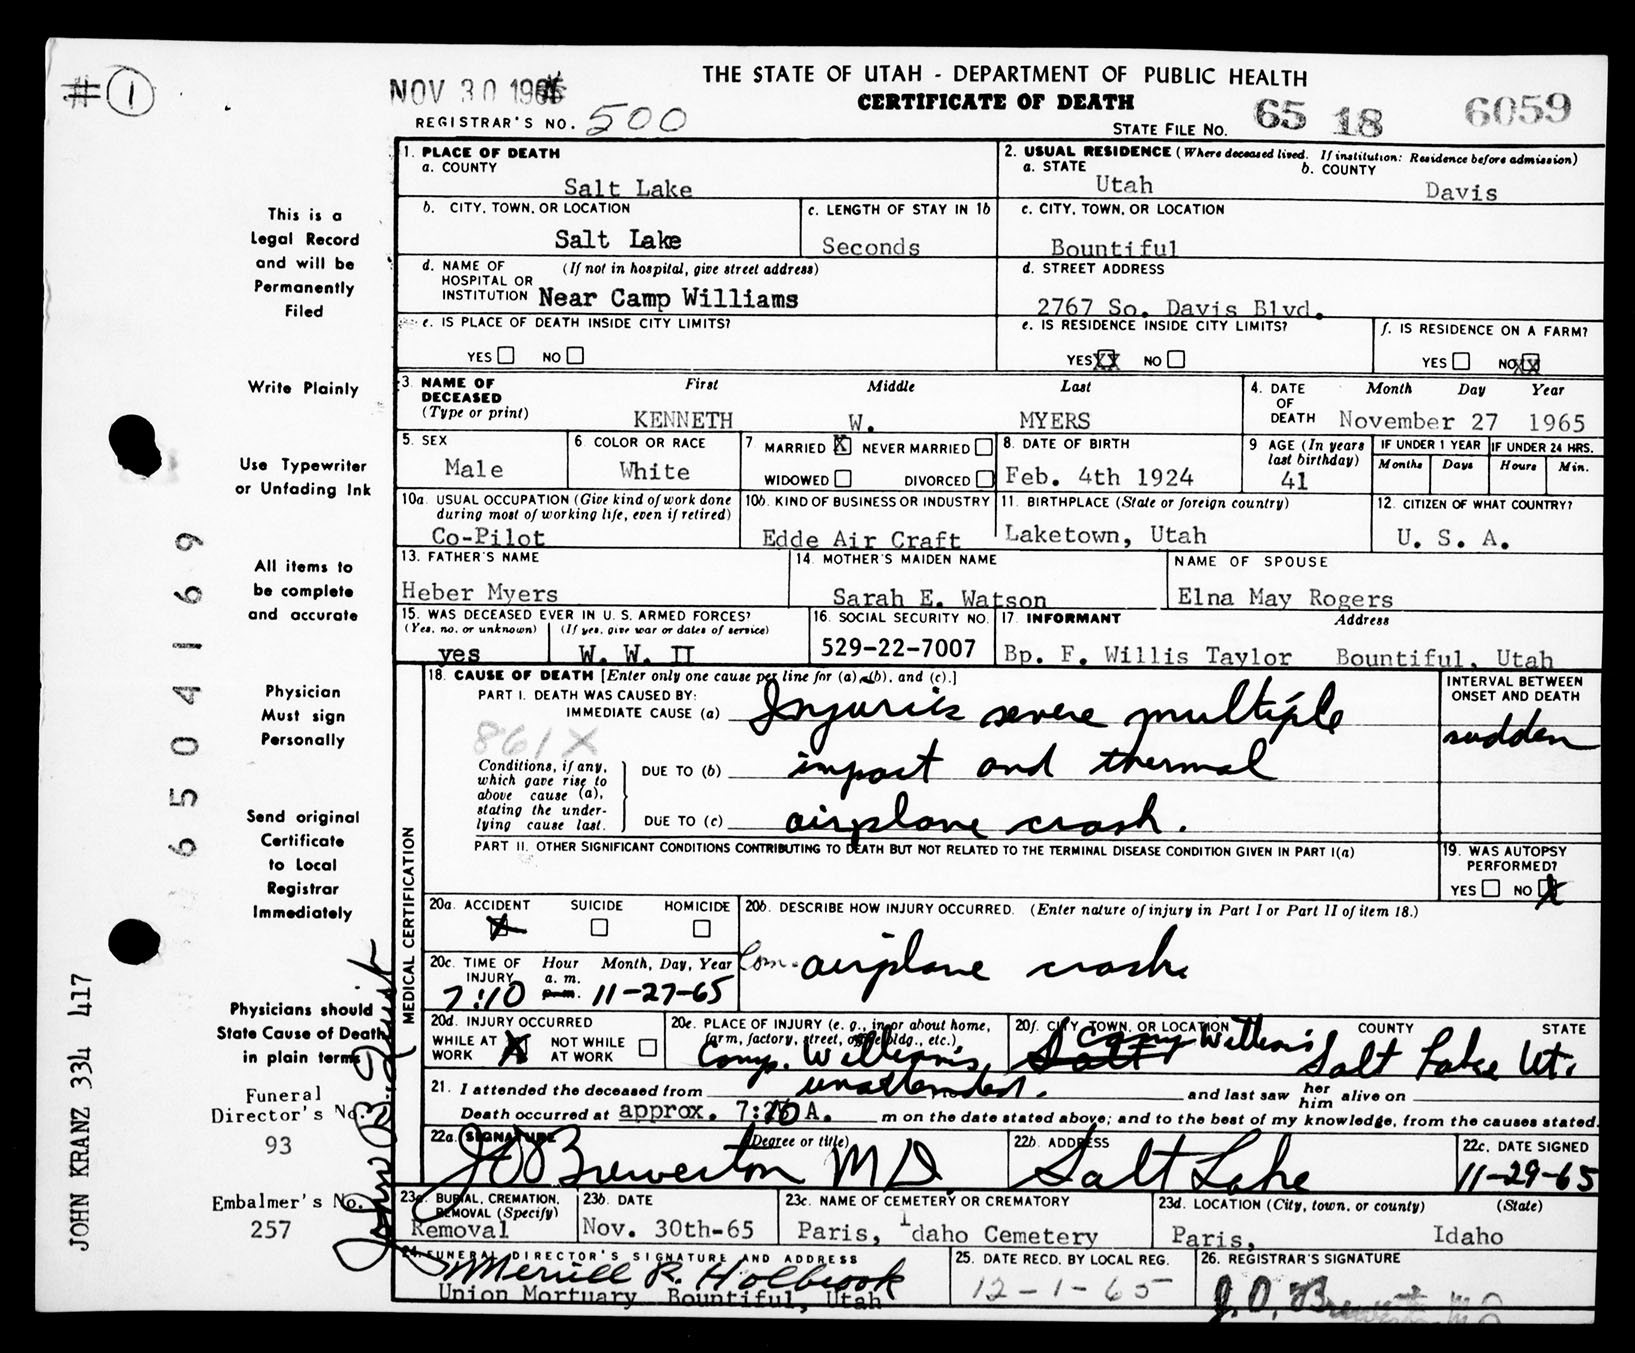 # 1
NOV 30 1965
THE STATE OF UTAH - DEPARTMENT OF PUBLIC HEALTH
CERTIFICATE OF DEATH
REGISTRAR'S NO. 500
STATE FILE NO. 65 18 6059
This is a
Legal Record
and will be
Permanently
Filed
Write Plainly
Use Typewriter
or Unfading Ink
All items to
be complete
and accurate
Physician
Must sign
Personally
Send original
Certificate
to Local
Registrar
Immediately
Physicians should
State Cause of Death
in plain terms
Funeral
Director's No.
93
Embalmer's No.
257
6504169
JOHN KRANZ 334 417
1. PLACE OF DEATH
a. COUNTY
Salt Lake
2. USUAL RESIDENCE (Where deceased lived. If institution: Residence before admission)
a. STATE b. COUNTY
Utah Davis
b. CITY, TOWN, OR LOCATION
Salt Lake
c. LENGTH OF STAY IN 1b
Seconds
c. CITY, TOWN, OR LOCATION
Bountiful
d. NAME OF (If not in hospital, give street address)
HOSPITAL OR
INSTITUTION Near Camp Williams
d. STREET ADDRESS
2767 So. Davis Blvd.
e. IS PLACE OF DEATH INSIDE CITY LIMITS?
YES NO
e. IS RESIDENCE INSIDE CITY LIMITS?
YES XX NO
f. IS RESIDENCE ON A FARM?
YES NO XX
3. NAME OF First Middle Last
DECEASED
(Type or print) KENNETH W. MYERS
4. DATE Month Day Year
OF
DEATH November 27 1965
5. SEX
Male
6 COLOR OR RACE
White
7 MARRIED X NEVER MARRIED
WIDOWED DIVORCED
8. DATE OF BIRTH
Feb. 4th 1924
9 AGE (In years
last birthday)
41
IF UNDER 1 YEAR IF UNDER 24 HRS.
Months Days Hours Min.
10a. USUAL OCCUPATION (Give kind of work done
during most of working life, even if retired)
Co-Pilot
10b. KIND OF BUSINESS OR INDUSTRY
Edde Air Craft
11. BIRTHPLACE (State or foreign country)
Laketown, Utah
12. CITIZEN OF WHAT COUNTRY?
U. S. A.
13. FATHER'S NAME
Heber Myers
14. MOTHER'S MAIDEN NAME
Sarah E. Watson
NAME OF SPOUSE
Elna May Rogers
15. WAS DECEASED EVER IN U. S. ARMED FORCES?
(Yes, no, or unknown) (If yes, give war or dates of service)
yes W. W. II
16. SOCIAL SECURITY NO.
529-22-7007
17. INFORMANT Address
Bp. F. Willis Taylor Bountiful, Utah
MEDICAL CERTIFICATION
18. CAUSE OF DEATH [Enter only one cause per line for (a), (b), and (c).]
INTERVAL BETWEEN
ONSET AND DEATH
PART I. DEATH WAS CAUSED BY:
IMMEDIATE CAUSE (a) Injuries severe multiple
sudden
861X
Conditions, if any,
which gave rise to
above cause (a),
stating the under-
lying cause last.
DUE TO (b) impact and thermal
DUE TO (c) airplane crash.
PART II. OTHER SIGNIFICANT CONDITIONS CONTRIBUTING TO DEATH BUT NOT RELATED TO THE TERMINAL DISEASE CONDITION GIVEN IN PART I(a)
19. WAS AUTOPSY
PERFORMED?
YES NO X
20a. ACCIDENT SUICIDE HOMICIDE
X
20b. DESCRIBE HOW INJURY OCCURRED. (Enter nature of injury in Part I or Part II of item 18.)
Com. airplane crash
20c. TIME OF Hour Month, Day, Year
INJURY a. m.
7:10 p.m. 11-27-65
20d. INJURY OCCURRED
WHILE AT WORK X NOT WHILE AT WORK
20e. PLACE OF INJURY (e. g., in or about home,
farm, factory, street, office bldg., etc.)
Camp. Williams
20f. CITY, TOWN, OR LOCATION COUNTY STATE
Salt Camp Williams Salt Lake Ut.
21. I attended the deceased from unattended. and last saw her him alive on
Death occurred at approx. 7:10 A. m on the date stated above; and to the best of my knowledge, from the causes stated.
22a. SIGNATURE (Degree or title)
JO Brewerton MD
22b. ADDRESS
Salt Lake
22c. DATE SIGNED
11-29-65
23a. BURIAL, CREMATION,
REMOVAL (Specify)
Removal
23b. DATE
Nov. 30th-65
23c. NAME OF CEMETERY OR CREMATORY
Paris, Idaho Cemetery
23d. LOCATION (City, town, or county) (State)
Paris, Idaho
24. FUNERAL DIRECTOR'S SIGNATURE AND ADDRESS
Merrill R. Holbrook
Union Mortuary Bountiful, Utah
25. DATE RECD. BY LOCAL REG.
12-1-65
26. REGISTRAR'S SIGNATURE
J. O. Brewerton MD